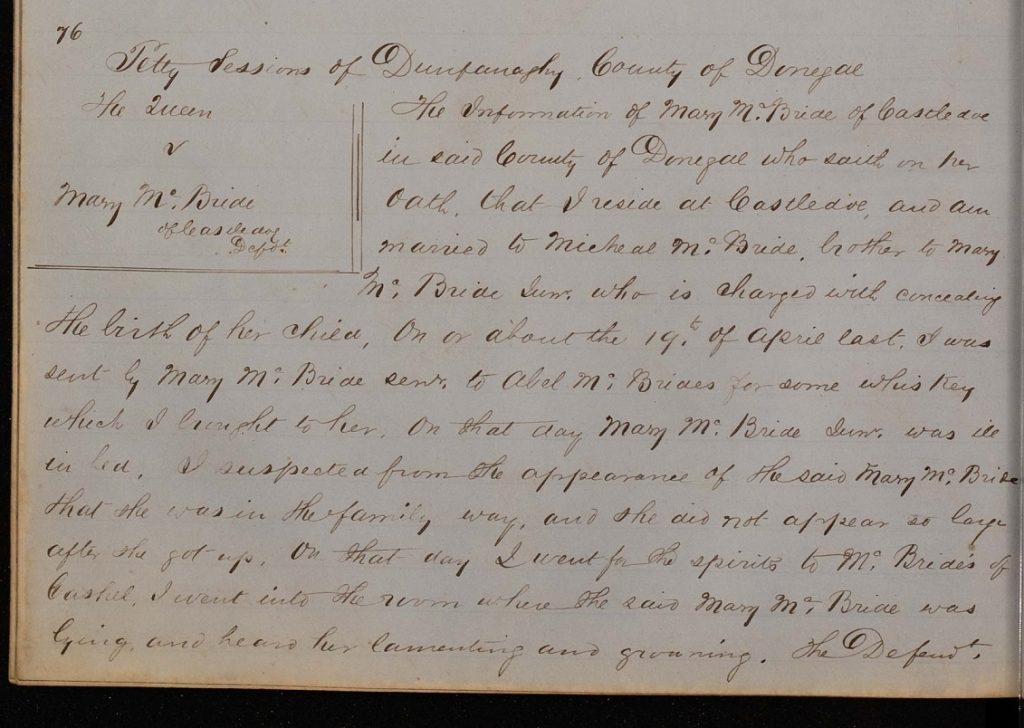 76
Petty Sessions of Dunfanaghy, County of Donegal
The Queen
v
Mary Mc. Bride
of Castledoe
Defdt.
The Information of Mary Mc. Bride of Castledoe
in said County of Donegal who saith on her
Oath, that I reside at Castledoe, and am
married to Micheal Mc. Bride, brother to Mary
Mc. Bride Junr. who is charged with concealing
the birth of her child, On or about the 19t. of April last, I was
sent by Mary Mc. Bride senr. to Abel Mc. Brides for some whiskey
which I brought to her, On that day Mary Mc. Bride Junr. was ill
in bed, I suspected from the appearance of the said Mary Mc. Bride
that she was in the family way, and she did not appear so large
after she got up, On that day I went for the spirits to Mc. Bride's of
Cashel, I went into the room where the said Mary Mc. Bride was
lying, and heard her lamenting and groaning. The Defendt.